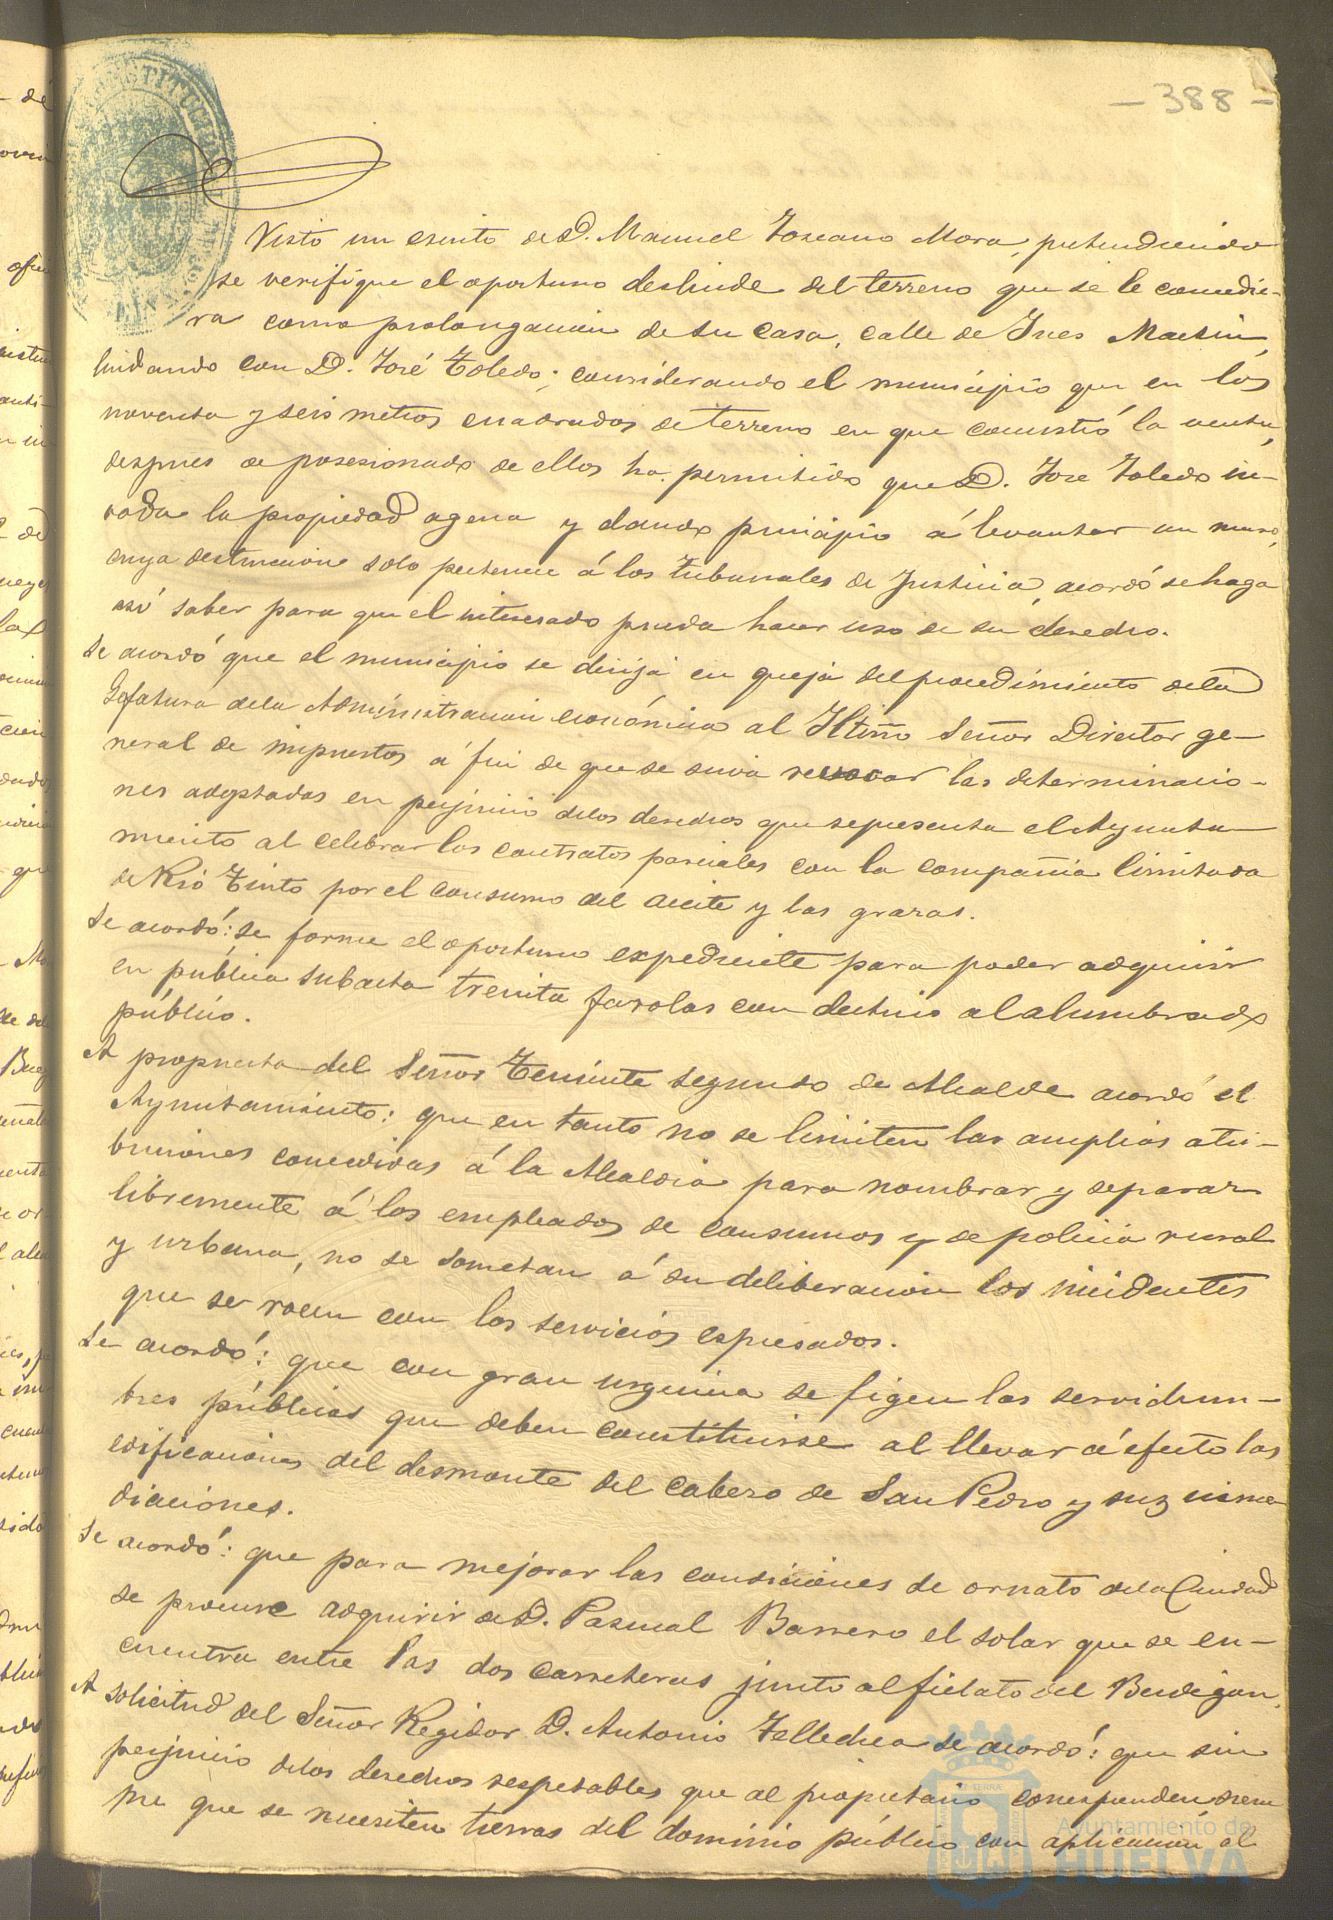 - 388 -
Visto un escrito de D. Manuel Toscano Mora, pretendiendo
se verifique el oportuno deslinde del terreno que se le concedie-
ra como prolongacion de su casa, calle de Ines Martin,
lindando con D. José Toledo; considerando el municipio que en los
noventa y seis metros cuadrados de terreno en que consistió la venta,
despues de posesionado de ellos ha permitido que D. Jose Toledo in-
vada la propiedad agena y dando principio á levantar un muro,
cuya destruccion solo pertenece á los tribunales de Justicia, acordó se haga
asi saber para que el interesado pueda hacer uso de su derecho.
Se acordó que el municipio se dirija en queja del procedimiento de la
Gefatura de la Administracion económica al Iltmo Señor Director ge-
neral de impuestos á fin de que se sirva revocar las determinacio-
nes adoptadas en perjuicio de los derechos que representa el Ayunta-
miento al celebrar los contratos parciales con la compañia limitada
de Rio Tinto por el consumo del aceite y las grasas.
Se acordó: se forme el oportuno expediente para poder adquirir
en publica subasta treinta farolas con destino al alumbrado
público.
A propuesta del Señor Teniente segundo de Alcalde acordó el
Ayuntamiento: que en tanto no se limiten las amplias atri-
buciones concedidas á la Alcaldia para nombrar y separar
libremente á los empleados de consumos y de policia rural
y urbana, no se sometan á su deliberacion los incidentes
que se rocen con los servicios espresados.
Se acordó: que con gran urgencia se figen las servidum-
bres públicas que deben constituirse al llevar á efecto las
edificaciones del desmonte del cabezo de San Pedro y sus inme-
diaciones.
Se acordó: que para mejorar las condiciones de ornato de la Ciudad
se procure adquirir de D. Pascual Barrero el solar que se en-
cuentra entre las dos carreteras junto al fielato del Berdigon.
A solicitud del Señor Regidor D. Antonio Tellechea se acordó: que sin
perjuicio de los derechos respetables que al propietario corresponden, siem
pre que se necesiten tierras del dominio público con aplicacion al
Ayuntamiento de
HUELVA